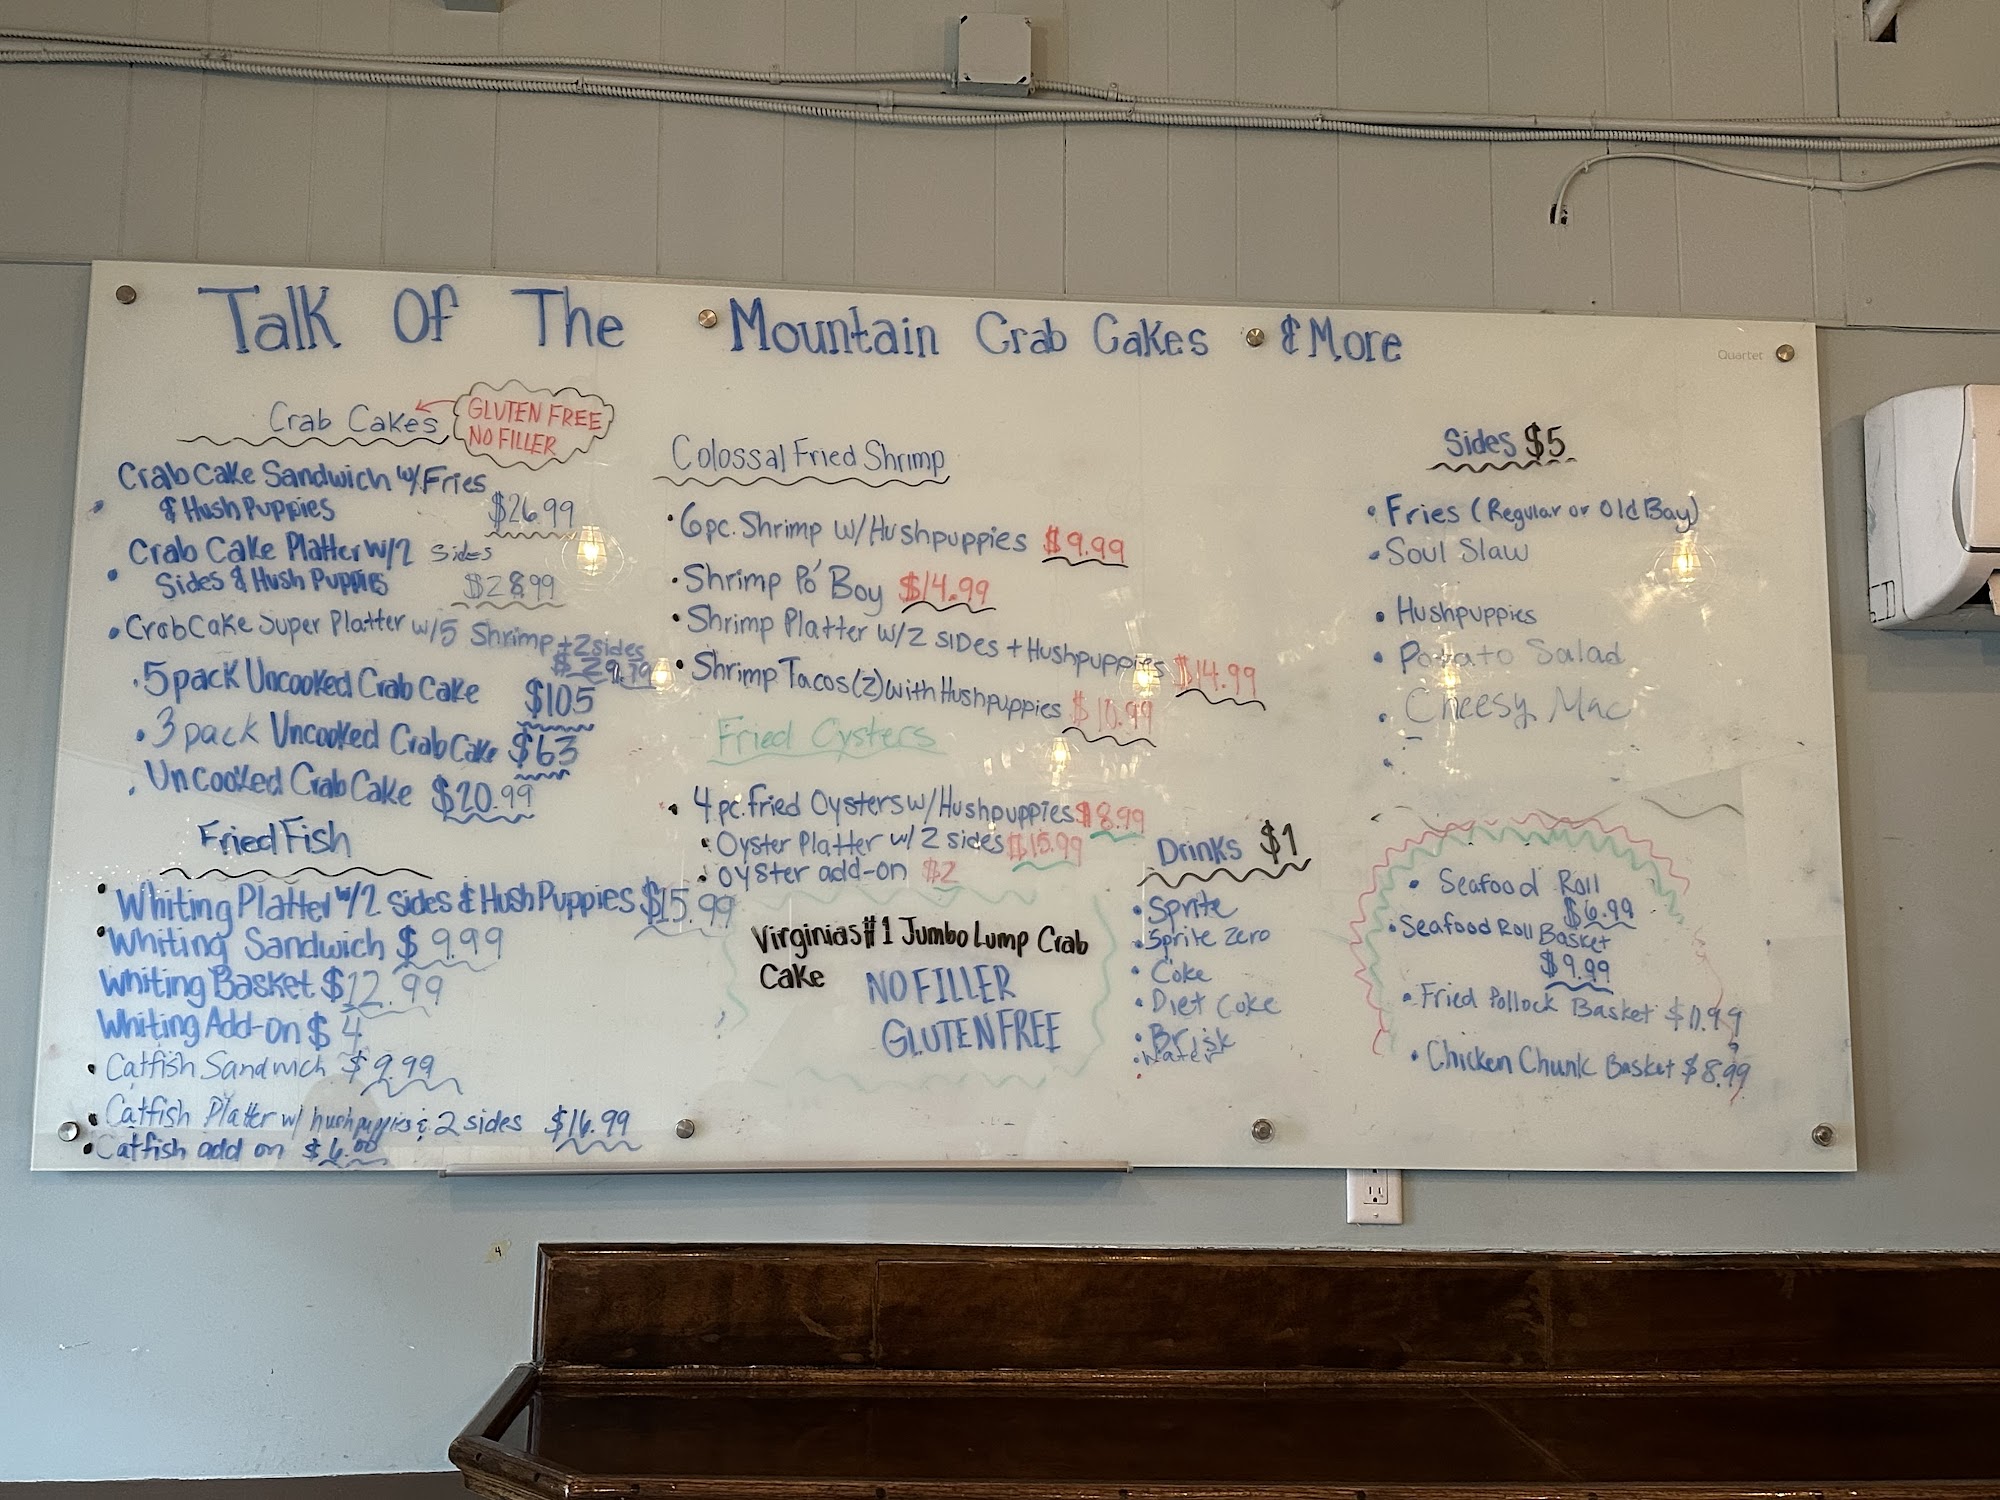 Talk Of The Mountain Crab Cakes & More
Quartet
Crab Cakes
GLUTEN FREE
NO FILLER
Crab Cake Sandwich w/ Fries
& Hush Puppies $26.99
Crab Cake Platter w/2 sides
Sides & Hush Puppies $28.99
Crab Cake Super Platter w/5 Shrimp + 2 sides
5 pack Uncooked Crab Cake $105
3 pack Uncooked Crab Cake $63
Uncooked Crab Cake $20.99
Fried Fish
Whiting Platter w/2 sides & Hush Puppies $15.99
Whiting Sandwich $9.99
Whiting Basket $12.99
Whiting Add-on $4
Catfish Sandwich $9.99
Catfish Platter w/ hushpuppies & 2 sides $16.99
Catfish add on $6.00
Colossal Fried Shrimp
6pc. Shrimp w/Hushpuppies $9.99
Shrimp Po' Boy $14.99
Shrimp Platter w/2 SIDES + Hushpuppies $14.99
Shrimp Tacos (2) with Hushpuppies $10.99
Fried Oysters
4 pc. Fried Oysters w/Hushpuppies $8.99
Oyster Platter w/ 2 sides $15.99
Oyster add-on $2
Virginias #1 Jumbo Lump Crab
Cake
NO FILLER
GLUTEN FREE
Drinks $1
Sprite
Sprite Zero
Coke
Diet Coke
Brisk
Water
Sides $5
Fries (Regular or Old Bay)
Soul Slaw
Hushpuppies
Potato Salad
Cheesy Mac
Seafood Roll
$6.99
Seafood Roll Basket
$9.99
Fried Pollock Basket
Chicken Chunk Basket $8.99
4